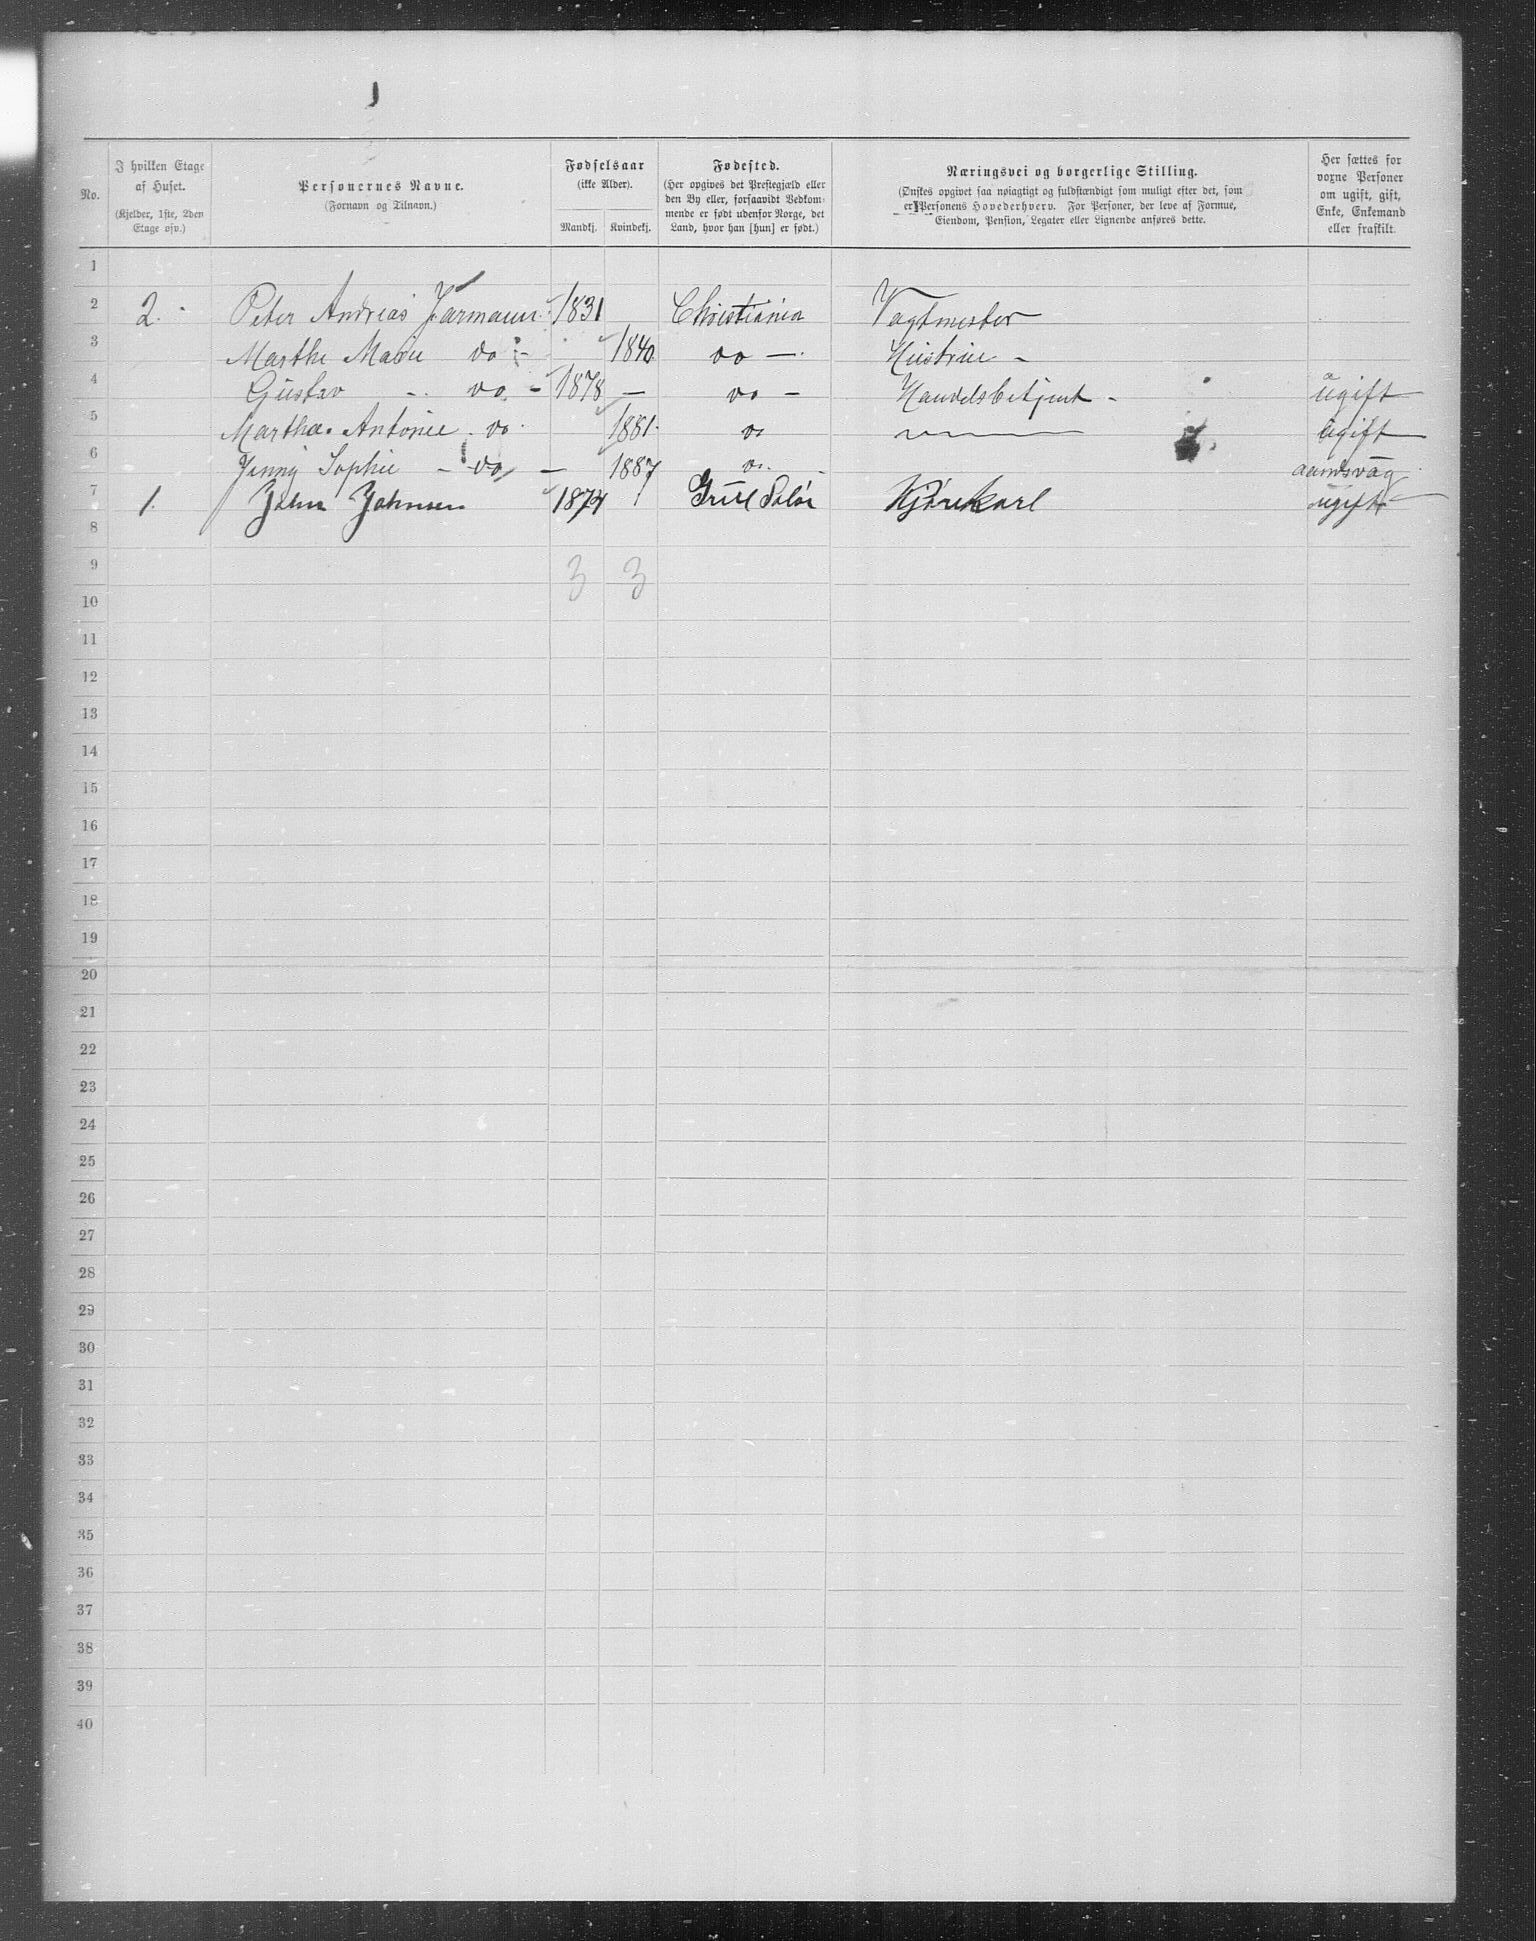 No.
I hvilken Etage af Huset.
(Kjelder, 1ste, 2den Etage osv.)
Personernes Navne.
(Fornavn og Tilnavn.)
Fødselsaar
(ikke Alder).
Mandkj. Kvindekj.
Fødested.
(Her opgives det Prestegjæld eller
den By eller, forsaavidt Vedkom-
mende er født udenfor Norge, det
Land, hvor han [hun] er født.)
Næringsvei og borgerlige Stilling.
(Ønskes opgivet saa nøiagtigt og fuldstændigt som muligt efter det, som
er Personens Hovederhverv. For Personer, der leve af Formue,
Eiendom, Pension, Legater eller Lignende anføres dette.
Her sættes for
voxne Personer
om ugift, gift,
Enke, Enkemand
eller fraskilt.
1
2 2. Peter Andreas Jarmann 1831 Christiania Vagtmester
3 Marthe Marie do - 1840 do - Hustrue -
4 Gustav - do - 1878 - do - Handelsbetjent - ugift
5 Martha Antonie do 1881 do ugift
6 Jenny Sophie - do - 1887 do aandsvag
7 1. John Johnsen 1874 Grue Solør Kjørekarl ugift
8
9 3 3
10
11
12
13
14
15
16
17
18
19
20
21
22
23
24
25
26
27
28
29
30
31
32
33
34
35
36
37
38
39
40